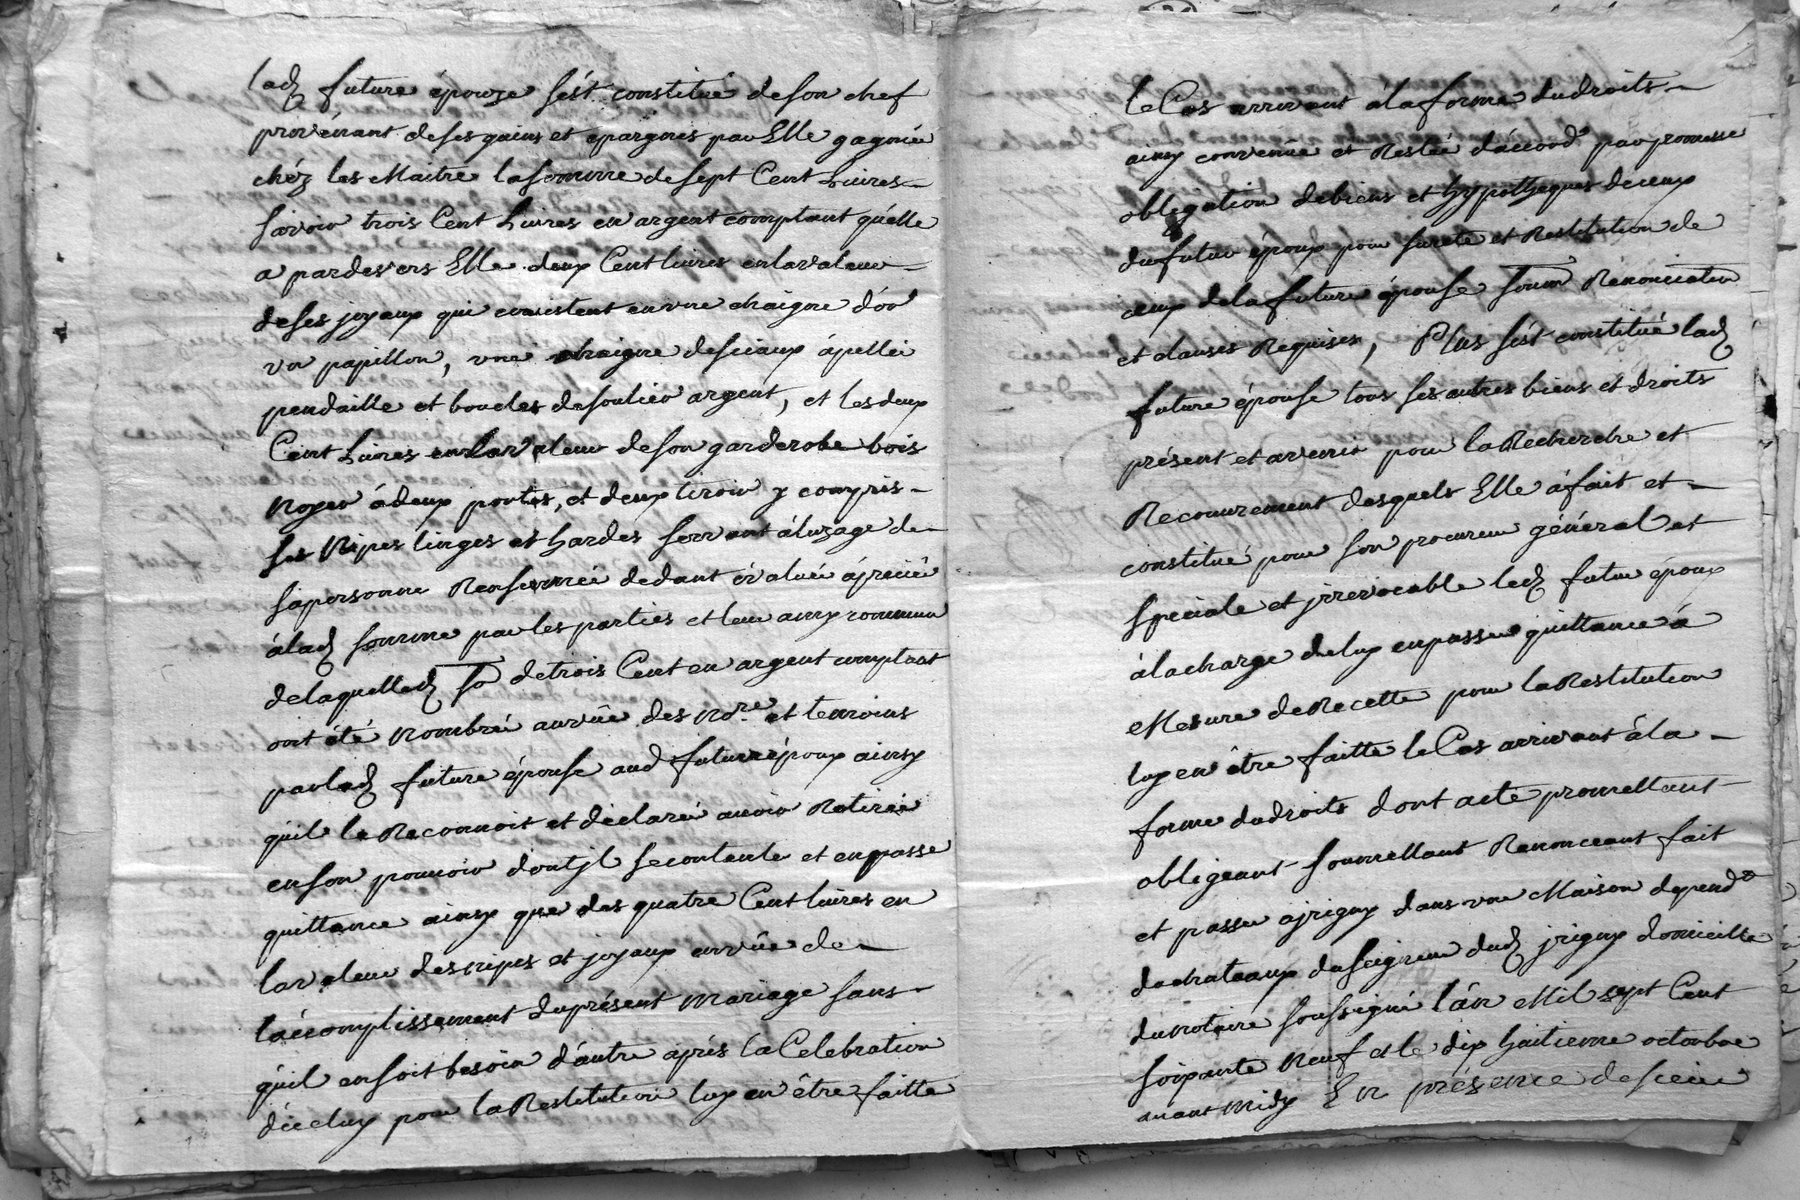 lad future épouze s'est constitué de son chef
provénant de ses gains et epargnes par Elle gagnée
chéz les Maitre la somme de sept Cent Livres
savoir trois Cent Livres en argent comptant qu'elle
a pardevers Elle deux Cent livres en la valeur
de ses joyaux qui consistent en une chaigne d'or
un papillon, une chaigne de sciaux apellée
pendaille et boucles de soulier argent, et les deux
Cent Livres en la valeur de son garderobe bois
Noyer à deux portes, et deux tiroir y compris
ses Nipes linges et hardes servant à l'uzage de
sa personne Renfermée dedant évaluée apreciée
à lad somme par les parties et leur amy commun
de laquelle d. so de trois Cent en argent comptant
ont été Nombré au vûe des No.re et temoins
par lad future épouse aud futur époux ainsy
qu'il le Reconnoit et déclaré avoir Retirée
en son pouvoir dont jl se contente et en passe
quittance ainsy que des quatre Cent livres en
la valeur des nipes et joyaux en vûe de
l'accomplissement du présent Mariage sans
qu'il en soit besoin d'autre après la Celebration
d'iceluy pour la Restitution luy en être faitte
le Cas arrivant à la forme du droits
ainsy convenue et Restée d'accord par promesse
obligation de biens et hypotheques de ceux
du futur époux pour sureté et Restitution de
ceux de la future épouse soum Renonciation
et clauses Requises, Plus s'est constitué lad
future épouse tous ses autres biens et droits
présent et avenir pour la Recherche et
Recouvrement desquels Elle à fait et
constitué pour son procureur général et
speciale et jrrevocable led futur époux
à la charge de luy en passer quittance à
Mesure de Recette pour la Restitution
luy en être faitte le Cas arrivant à la
forme du droits dont acte promettant
obligeant soumettant Renonceant fait
et passé a jrigny dans une Maison depend.te
du chateaux du seigneur dud jrigny domicille
du notaire soussigné l'an Mil sept Cent
soixante Neuf et le dix huitieme octobre
avant Midy En présence de sieur